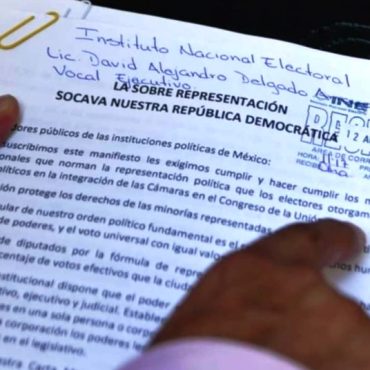 Instituto Nacional Electoral
Lic. David Alejandro Delgado A
Vocal Ejecutivo.
INE
LA SOBRE REPRESENTACIÓN
SOCAVA NUESTRA REPÚBLICA DEMOCRÁTICA
12 A
ÁREA DE CORRE
HORA:
RECIBÍ
dores públicos de las instituciones políticas de México:
suscribimos este manifiesto les exigimos cumplir y hacer cumplir los m
onales que norman la representación política que los electores otorgam
olíticos en la integración de las Cámaras en el Congreso de la Unión
ión protege los derechos de las minorías representadas
ular de nuestro orden político fundamental es el
de poderes, y el voto universal con igual valor
de diputados por la fórmula de repre
centaje de votos efectivos que la ciuda
stitucional dispone que el poder
tivo, ejecutivo y judicial. Estable
es en una sola persona o corpo
corporación los poderes le
en el legislativo.